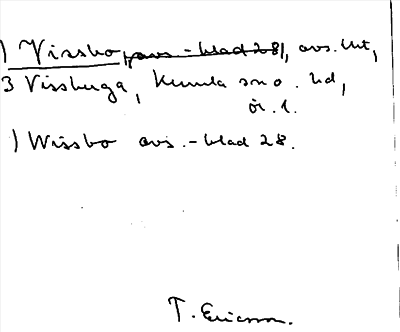 ) Vissbo, avs.-blad 28), avs. ht,
3 Vissberga, Kumla sn o. hd,
ör. l.
) Wissbo avs.-blad 28.
T. Ericsson.